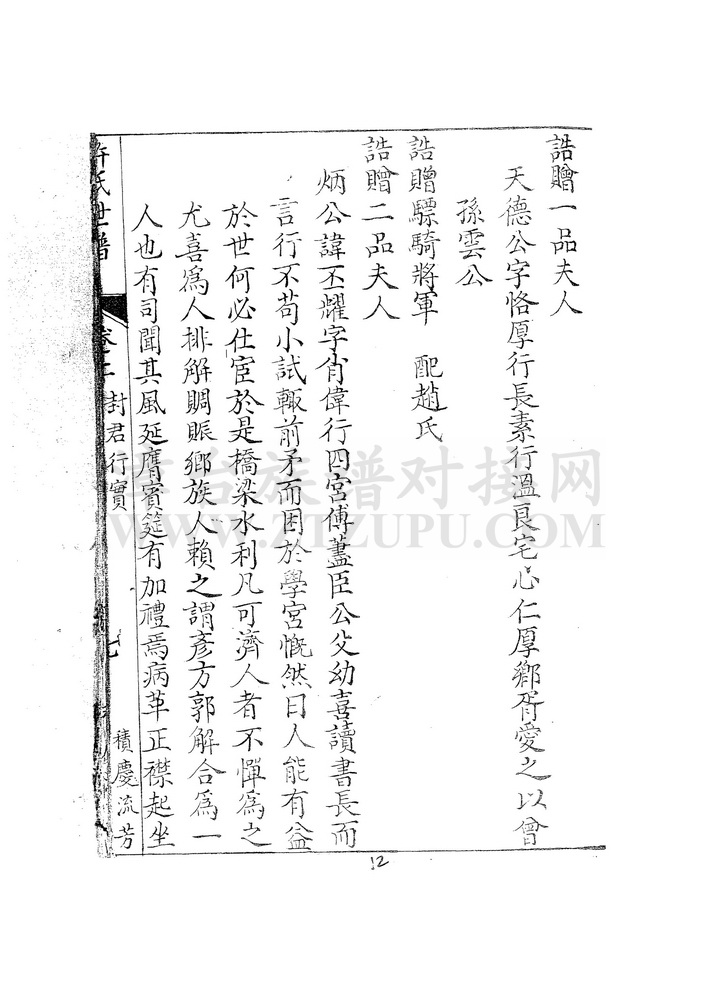 誥贈一品夫人
天德公字恪厚行長素行溫良宅心仁厚鄉胥愛之以曾
孫雲公
誥贈驃騎將軍　配趙氏
誥贈二品夫人
炳公諱丕耀字肖偉行四宮傅藎臣公父幼喜讀書長而
言行不苟小試輙前矛而困於學宮慨然曰人能有益
於世何必仕宦於是橋梁水利凡可濟人者不憚為之
尤喜為人排解賙賑鄉族人賴之謂彥方郭解合為一
人也有司聞其風延膺賓筵有加禮焉病革正襟起坐
許氏世譜
封君行實
七
積慶流芳
12
族谱对接网
WWW.ZTZUPU.COM